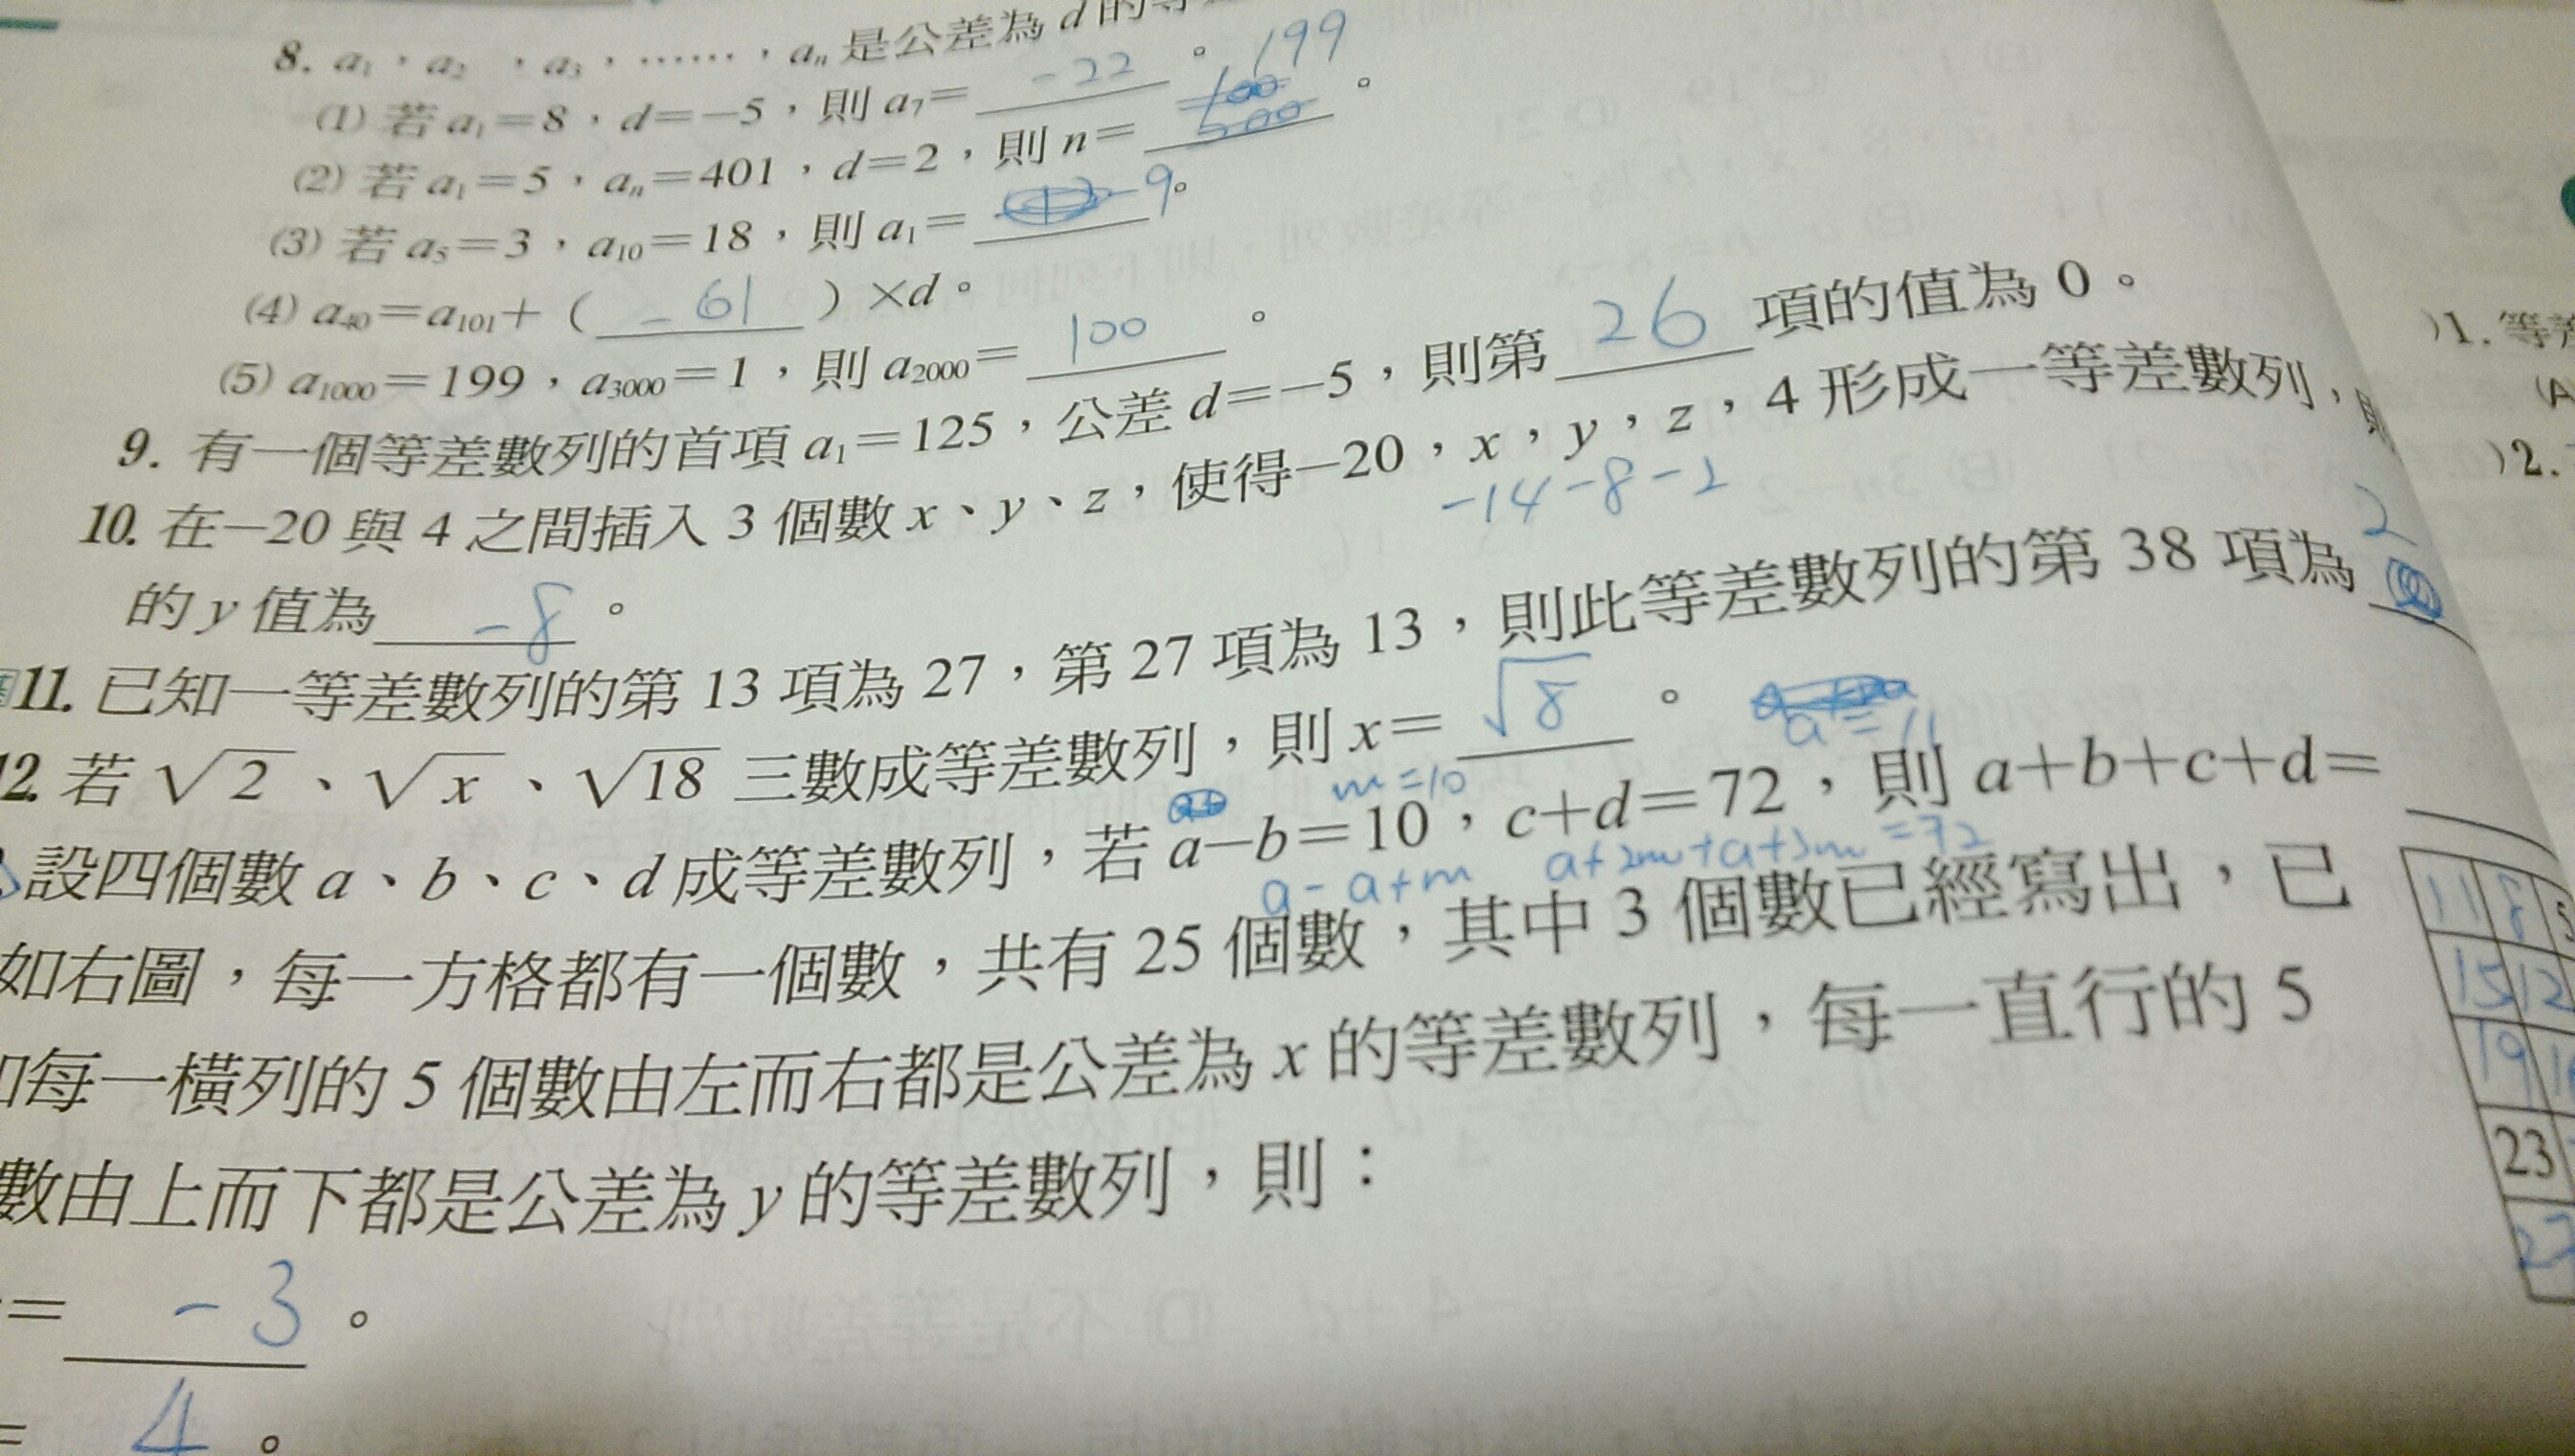 8. a₁，a₂，a₃，……，aₙ 是公差為 d 的等
(1) 若 a₁=8，d=−5，則 a₇= -22 。
199
(2) 若 a₁=5，aₙ=401，d=2，則 n= 。
(3) 若 a₅=3，a₁₀=18，則 a₁= -9 。
(4) a₄₀=a₁₀₁+（ -61 ）×d。
(5) a₁₀₀₀=199，a₃₀₀₀=1，則 a₂₀₀₀= 100 。
9. 有一個等差數列的首項 a₁=125，公差 d=−5，則第 26 項的值為 0。
10. 在−20 與 4 之間插入 3 個數 x、y、z，使得−20，x，y，z，4 形成一等差數列，則
-14 -8 -2
的 y 值為 -8 。
11. 已知一等差數列的第 13 項為 27，第 27 項為 13，則此等差數列的第 38 項為 2
12. 若 √2、√x、√18 三數成等差數列，則 x= √8 。
a=11
m=10
設四個數 a、b、c、d 成等差數列，若 a−b=10，c+d=72，則 a+b+c+d=
a-a+m a+2m+a+3m=72
如右圖，每一方格都有一個數，共有 25 個數，其中 3 個數已經寫出，已
知每一橫列的 5 個數由左而右都是公差為 x 的等差數列，每一直行的 5
數由上而下都是公差為 y 的等差數列，則：
= -3 。
= 4 。
11 8 5
15 12
19
23
27
)1. 等差
(A
)2.